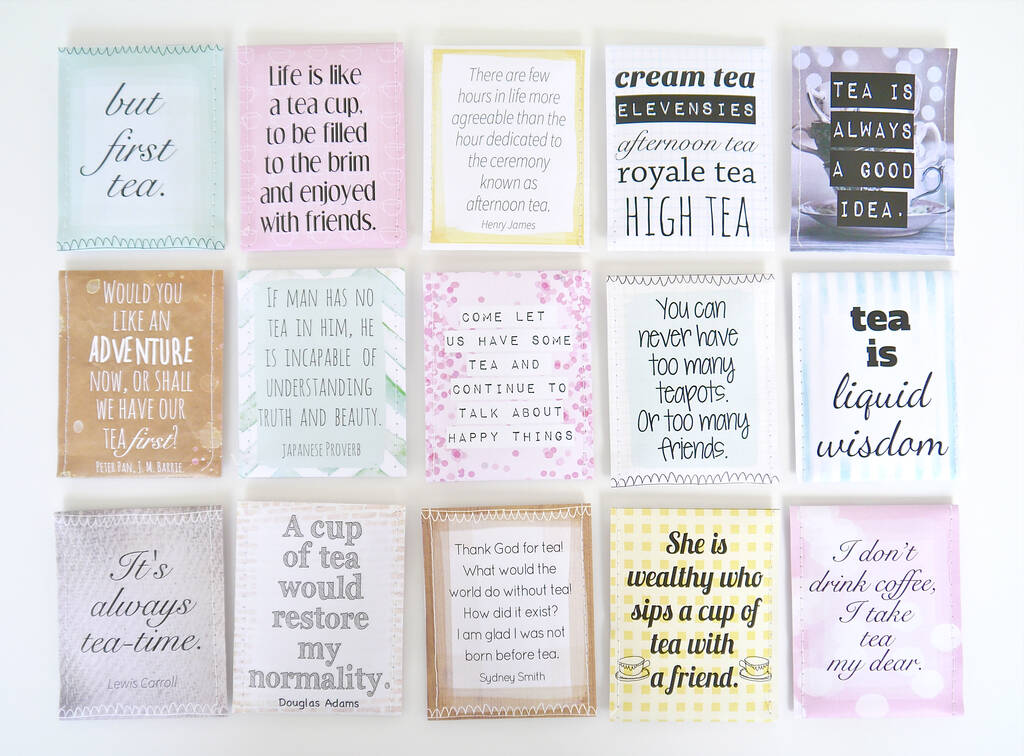 but
first
tea.
Life is like
a tea cup,
to be filled
to the brim
and enjoyed
with friends.
There are few
hours in life more
agreeable than the
hour dedicated to
the ceremony
known as
afternoon tea.
Henry James
cream tea
ELEVENSIES
afternoon tea
royale tea
HIGH TEA
TEA IS
ALWAYS
A GOOD
IDEA.
WOULD YOU
LIKE AN
ADVENTURE
NOW, OR SHALL
WE HAVE OUR
TEA first?
PETER PAN, J. M. BARRIE
IF MAN HAS NO
TEA IN HIM, HE
IS INCAPABLE OF
UNDERSTANDING
TRUTH AND BEAUTY.
JAPANESE PROVERB
COME LET
US HAVE SOME
TEA AND
CONTINUE TO
TALK ABOUT
HAPPY THINGS
You can
never have
too many
teapots.
Or too many
friends.
tea
is
liquid
wisdom
It's
always
tea-time.
Lewis Carroll
A cup
of tea
would
restore
my
normality.
Douglas Adams
Thank God for tea!
What would the
world do without tea!
How did it exist?
I am glad I was not
born before tea.
Sydney Smith
She is
wealthy who
sips a cup of
tea with
a friend.
I don't
drink coffee,
I take
tea
my dear.